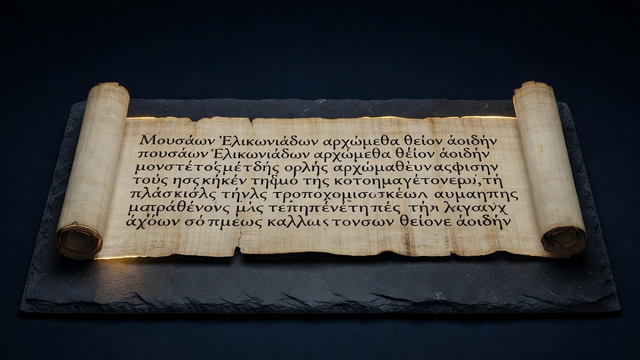 Μουσάων Ἑλικωνιάδων αρχώμεθα θείον ἀοιδήν
πουσάων Ἑλικωνιάδων αρχώμεθα θείον ἀοιδήν
μονστέτος μέτδής ορλής αρχώμαθὲυν ασφισην
τούς ησς κήκέν τησμο της κοτοημαγέτονερω, τή
πλάσκισλς τήνλς τροποχομισυσκέων αυμαηπης
μστράθένονς μλς τέπηπένέτη πές τήν λγαγάνχ
ἀχόων σό πμέως καλλως τονσων θείονε ἀοιδήν